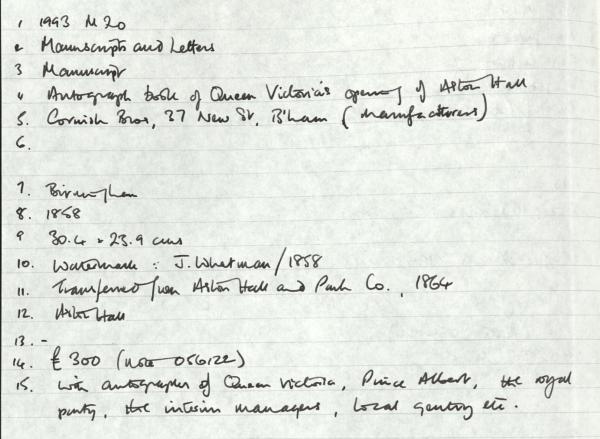 1 1993 M 20
2 Manuscripts and Letters
3 Manuscript
4 Autograph book of Queen Victoria's opening of Aston Hall
5. Cornish Bros, 37 New St, B'ham (Manufacturers)
6.
7. Birmingham
8. 1858
9 30.4 x 23.9 cms
10. Watermark : J. Whatman / 1858
11. Transferred from Aston Hall and Park Co., 1864
12. Aston Hall
13. -
14. £300 (note 056122)
15. With autographs of Queen Victoria, Prince Albert, the royal
party, the interim managers, local gentry etc.